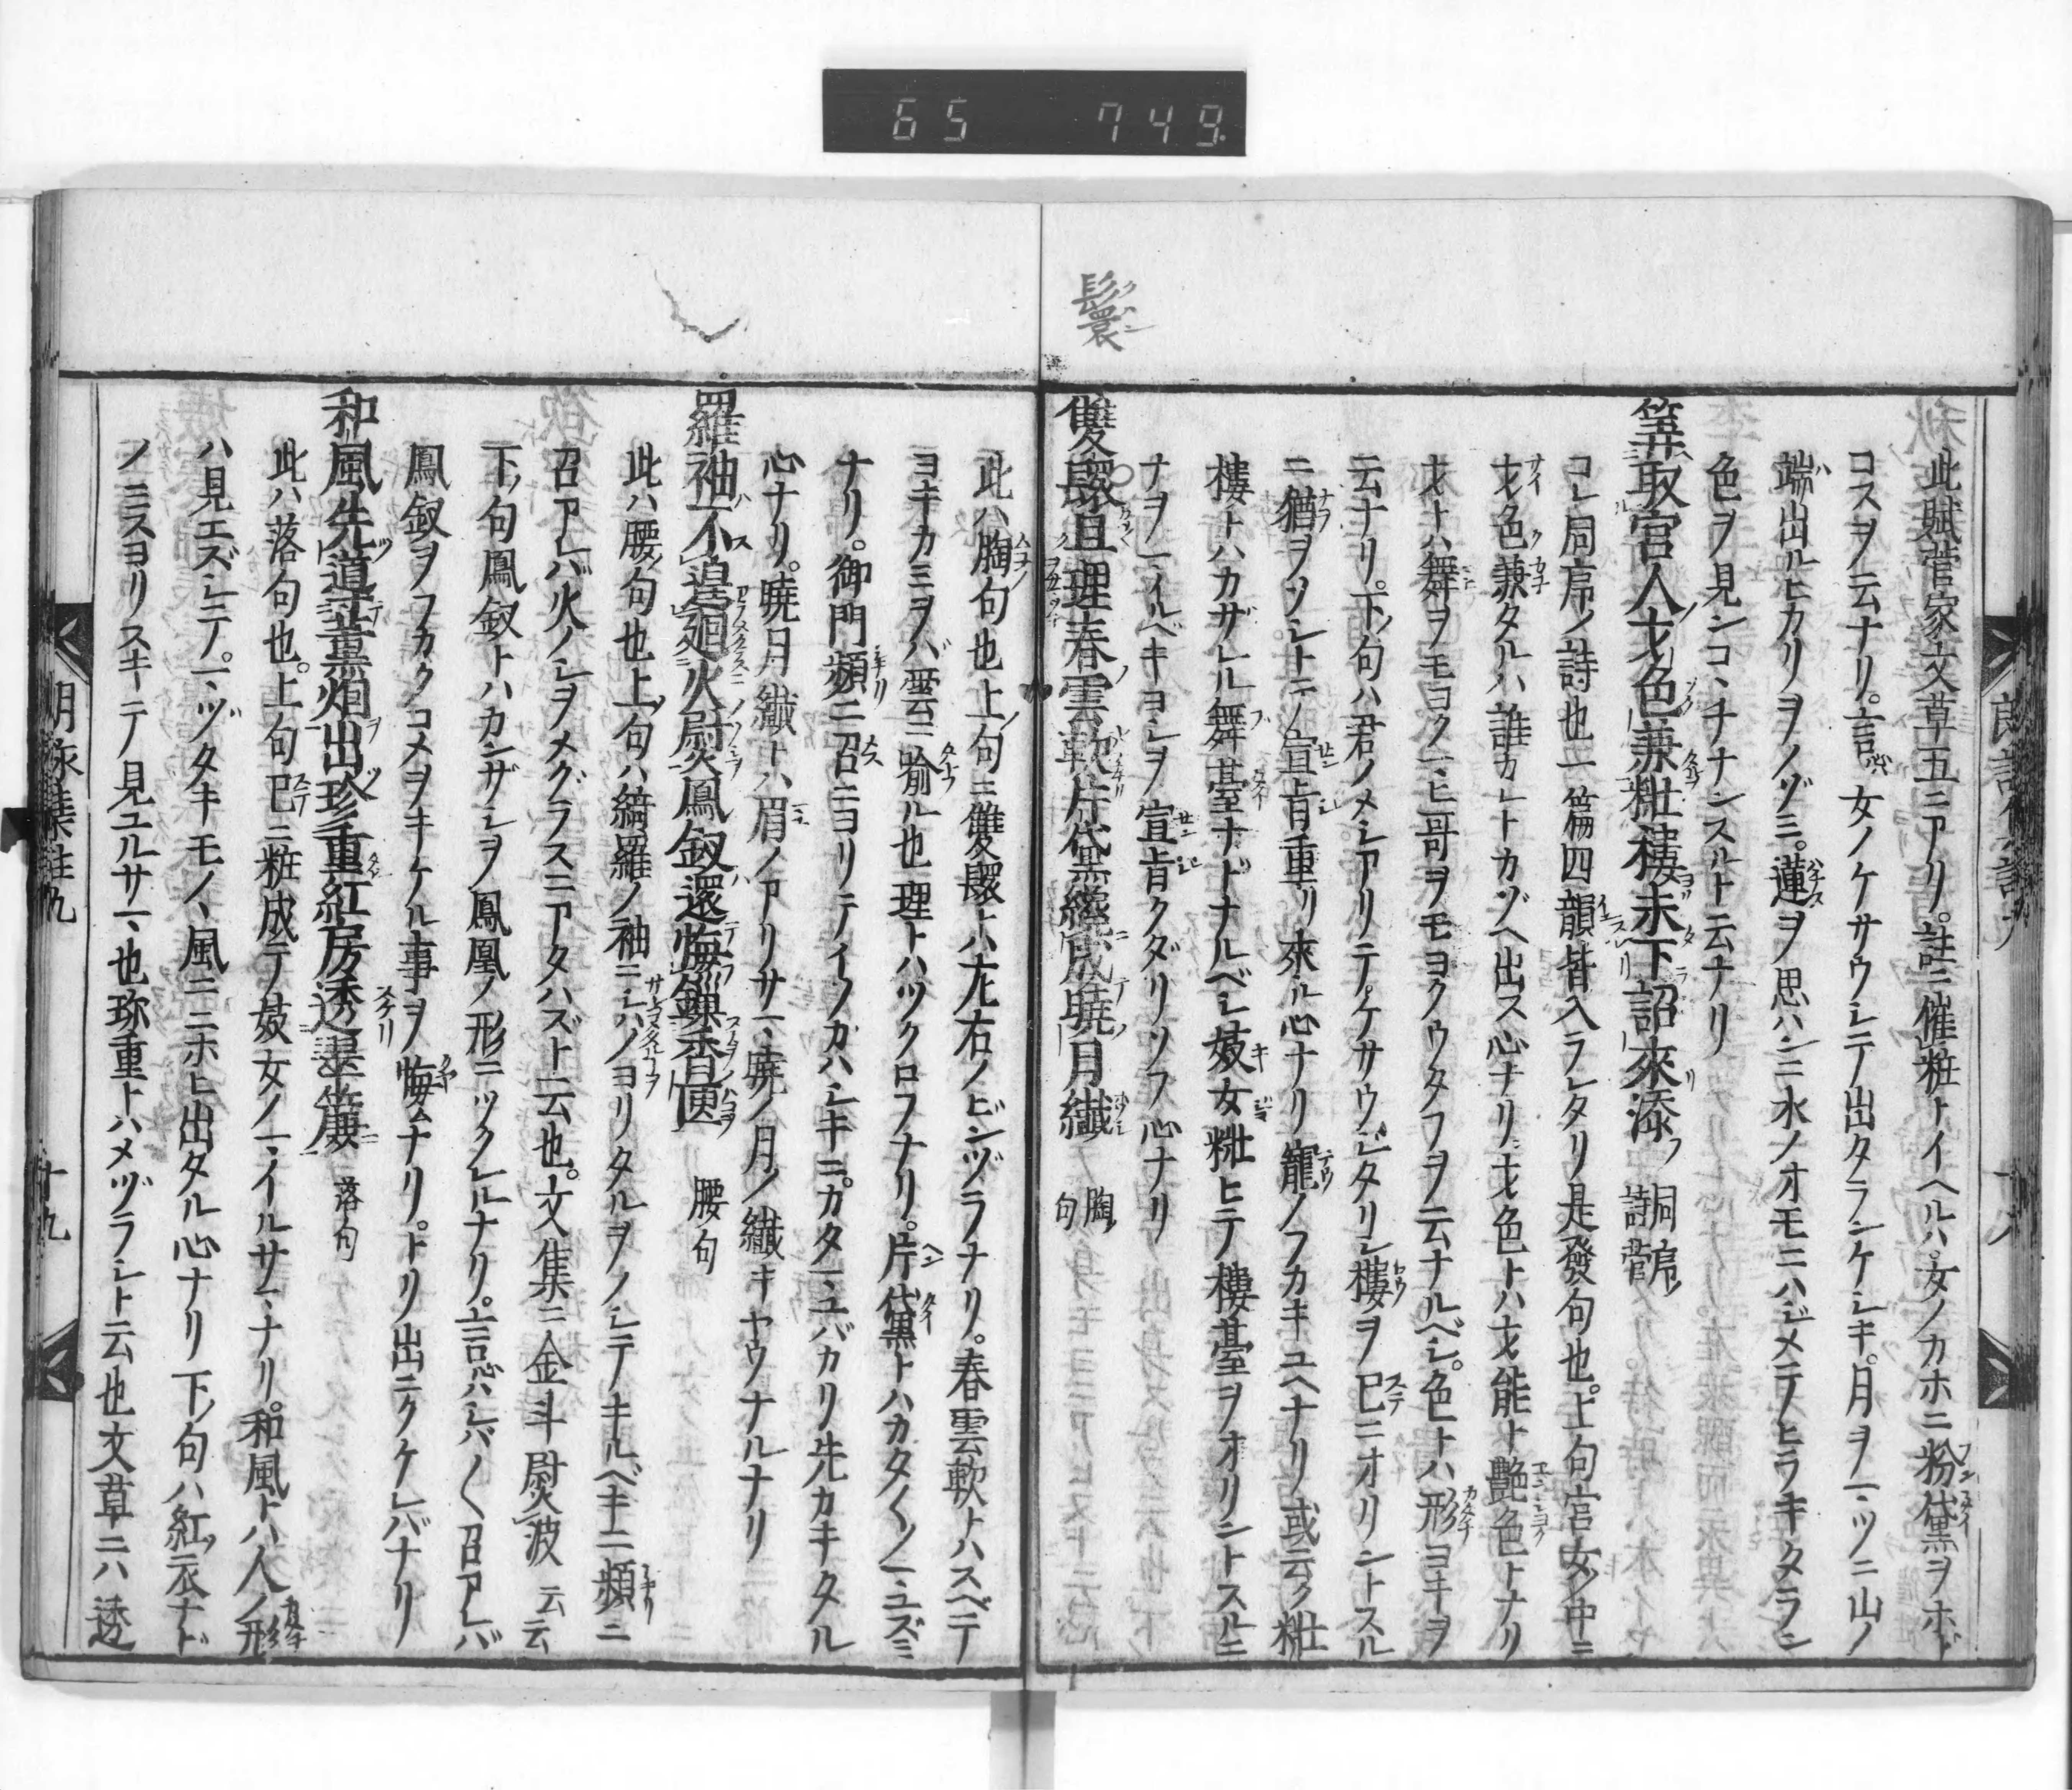 65 749
鬟
此賦菅家文草五ニアリ。註ニ催粧トイヘルハ。女ノカホニ粉黛ヲホド
コスヲ云ナリ。言ハ女ノケサウシテ出タランケシキ。月ヲマツニ山ノ
端出ルヒカリヲノゾミ。蓮ヲ思ハンニ水ノオモニハジメテヒラキタラン
色ヲ見ンコヽチナンスルト云ナリ
筭取宮人才色兼粧樓未下詔來添 同序ノ詩菅
コレ同序ノ詩也一篇四韻皆入ラレタリ是發句也。上句宮女ノ中ニ
才色兼タルハ誰カレトカゾヘ出ス心ナリ才色トハ才能ト艶色トナリ
才トハ舞ヲモヨクマヒ哥ヲモヨクウタフヲ云ナルベシ。色トハ形ヨキヲ
云ナリ。下ノ句ハ君ノメシアリテ。ケサウジタリシ樓ヲ已ニオリントスル
ニ猶ヲソシトテノ宣旨重リ來ル心ナリ寵ノフカキユヘナリ或云ク粧
樓トハカザレル舞臺ナドナルベシ妓女粧ヒテ樓臺ヲオリントスルニ
ナヲマイルベキヨシヲ宣旨クダリソフ心ナリ
雙鬟且理春雲軟片黛纔成曉月纖 胸句
此ハ胸句也上ノ句ニ雙鬟トハ左右ノビンヅラナリ。春雲軟トハスベテ
ヨキカミヲバ雲ニ喩ル也理トハツクロフナリ。片黛トハカタ〱ノマユズミ
ナリ。御門頻ニ召ニヨリテイソカハシキニ。カタマユバカリ先カキタル
心ナリ。曉月纖トハ眉ノアリサマ曉ノ月ノ纖キヤウナルナリ
羅袖不遑廻火熨鳳釵還悔鏁香匳 腰句
此ハ腰ノ句也上ノ句ハ綺羅ノ袖ニシハノヨリタルヲノシテキルベキニ頻ニ
召アレバ火ノシヲメグラスニアタハズト云也。文集ニ金斗熨波 云云
下ノ句鳳釵トハカンザシヲ鳳凰ノ形ニツクレルナリ。言心ハシバ〱召アレバ
鳳釵ヲフカクコメヲキケル事ヲ悔ムナリ。トリ出ニクケレバナリ
和風先導薫烟出珍重紅房透翠簾 落句
此ハ落句也。上句已ニ粧成テ妓女ノマイルサマナリ。和風トハ人ノ形
ハ見エズシテ。マヅタキモノヽ風ニニホヒ出タル心ナリ下ノ句ハ紅衣ナド
ノミスヨリスキテ見ユルサマ也珍重トハメヅラシト云也文草ニハ透
朗詠集註九
十九